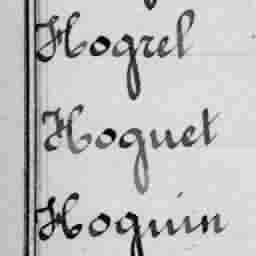 Hogrel
Hoguet
Hoguin